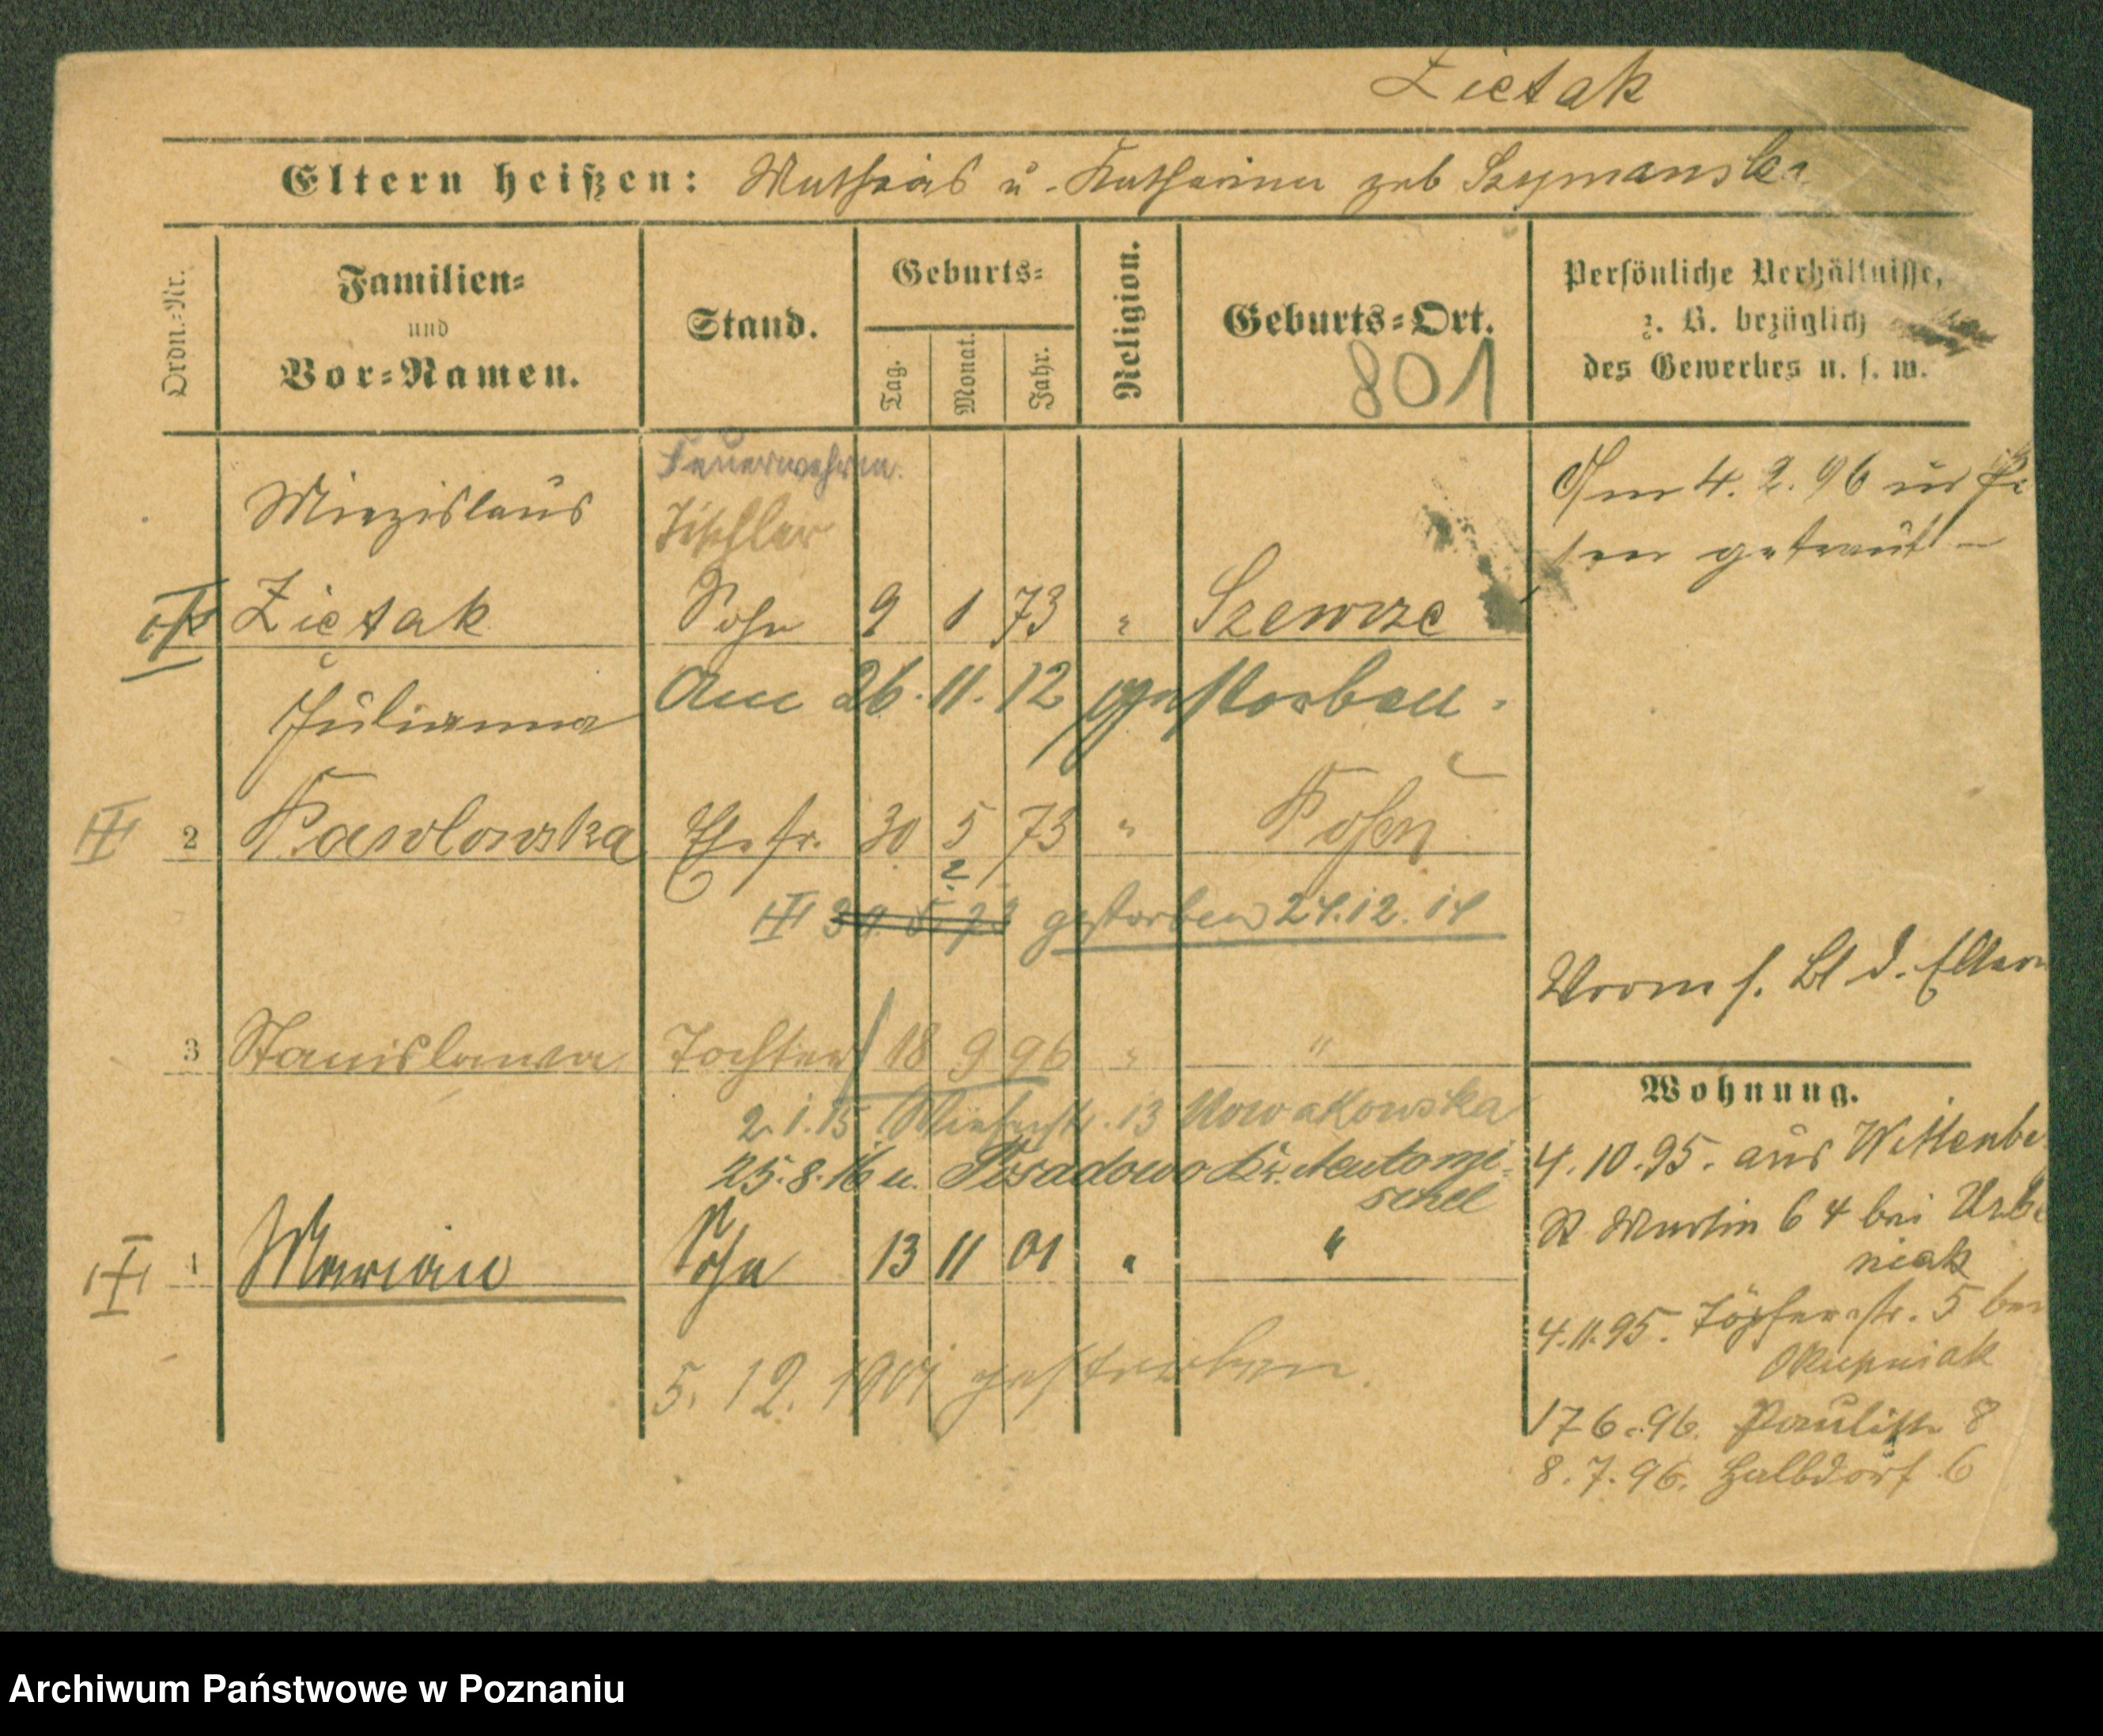 Zietak
Eltern heißen: Mathias u. Katharina geb Szymanska
Ordn.-Nr.
Familien-
und
Vor-Namen.
Stand.
Geburts-
Tag.
Monat.
Jahr.
Religion.
Geburts-Ort.
801
Persönliche Verhältnisse,
z. B. bezüglich
des Gewerbes u. s. w.
Feuerwehrm.
Miezislaus Tischler
Zietak Sohn 9 1 73 " Szewce
Am 26. 11. 12 gestorben.
Julianna
2 Pawlowska Ehefr. 30 5 73 " Posen
2
30 5 73 gestorben 24.12.14
3 Stanislawa Tochter 18 9 96 " "
2.1.15 13 Nowakowska
25.8.16 n. Posadowo Kr. Neutomi-
schel
4 Marian Sohn 13 11 01 " "
5. 12. 1901 gestorben.
Am 4. 2. 96 in Po
sen getraut
s. Bl d. Eltern
Wohnung.
4.10.95. aus Wittenbe
St Martin 64 bei Urba
niak
4.11.95. Töpferstr. 5 bei
Okupniak
17 6. 96. Paulistr 8
8. 7. 96. Halbdorf 6
Archiwum Państwowe w Poznaniu